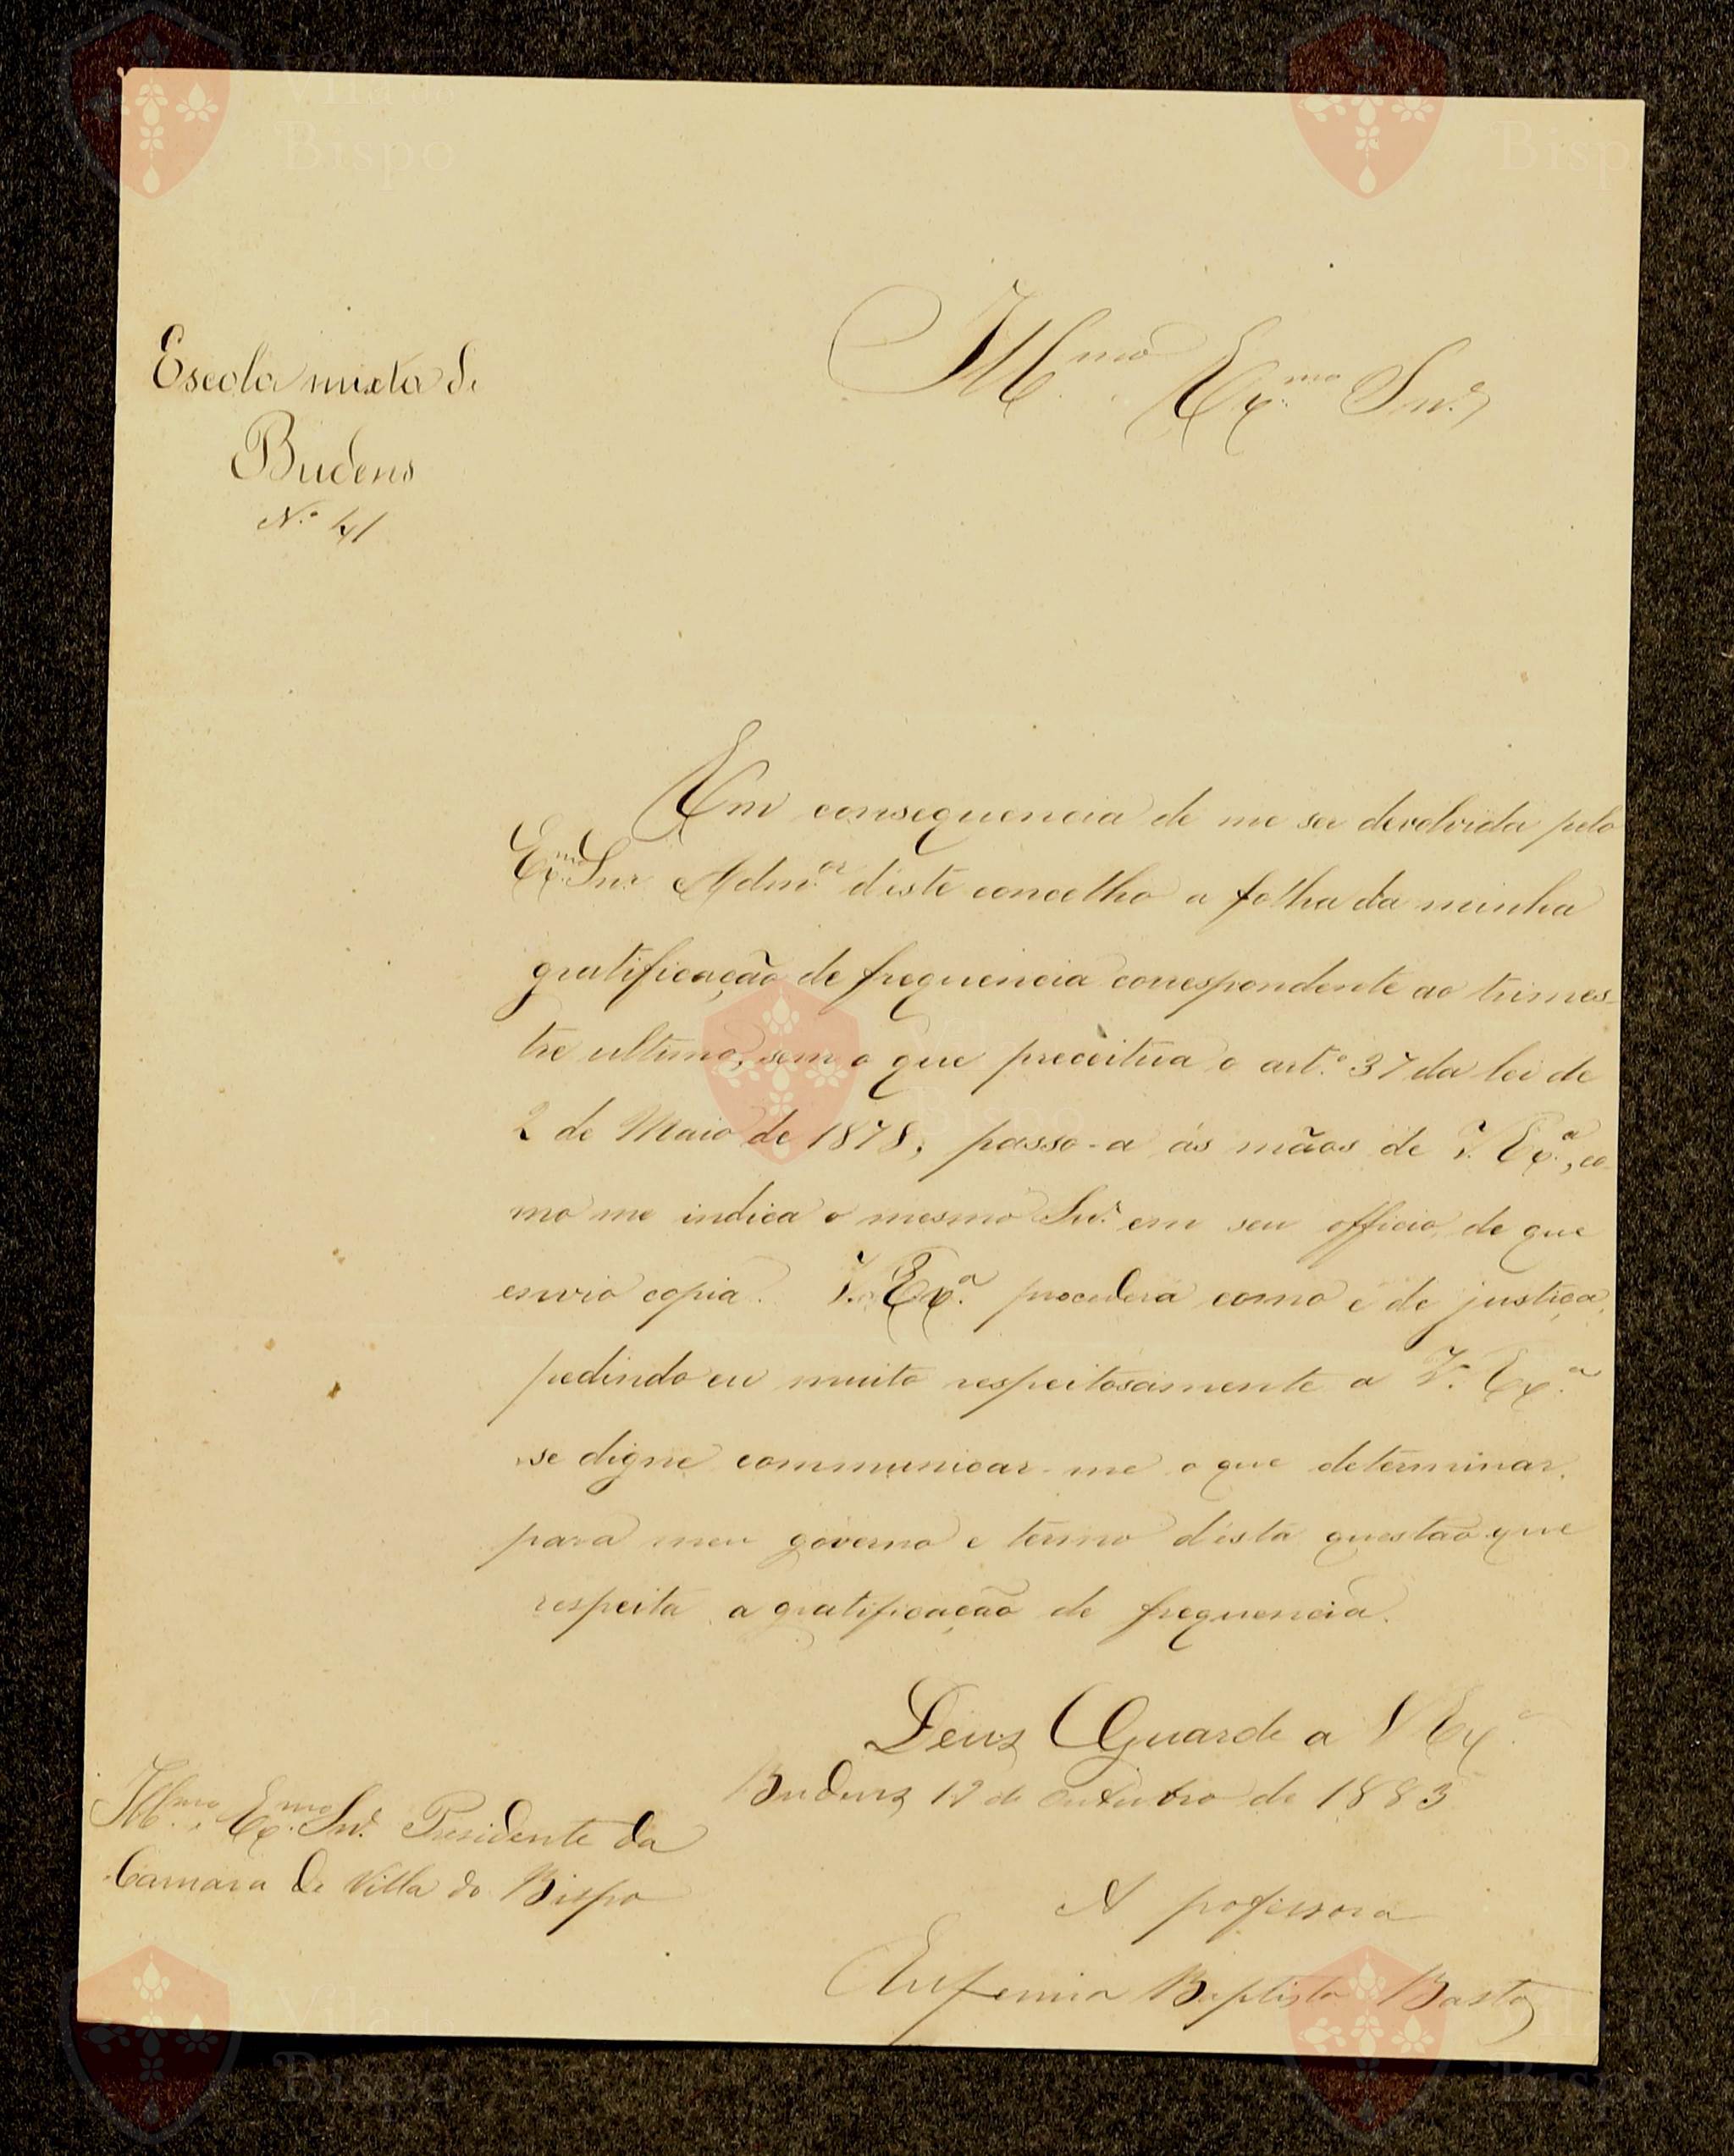 Escola mixta de
Budens
N.º 41
Ill.mo Ex.mo Snr.
Em consequencia de me ser devolvida pelo
Ex.mo Snr. Adm.or d'este concelho a folha da minha
gratificação de frequencia correspondente ao trimes-
tre ultimo, sem o que preceitua o art.º 37 da lei de
2 de Maio de 1878, passo-a ás mãos de V. Ex.ª, co-
mo me indica o mesmo Snr. em seu officio, de que
envio copia. V. Ex.ª procederá como é de justiça,
pedindo eu muito respeitosamente a V. Ex.ª
se digne communicar-me o que determinar,
para meu governo e termo d'esta questão que
respeita a gratificação de frequencia.
Deus Guarde a V Ex.ª
Budens 12 de Outubro de 1883
Ill.mo Ex.mo Snr. Presidente da
Camara de Villa do Bispo
A professora
Eufemia Baptista Basto
Vila do
Bispo